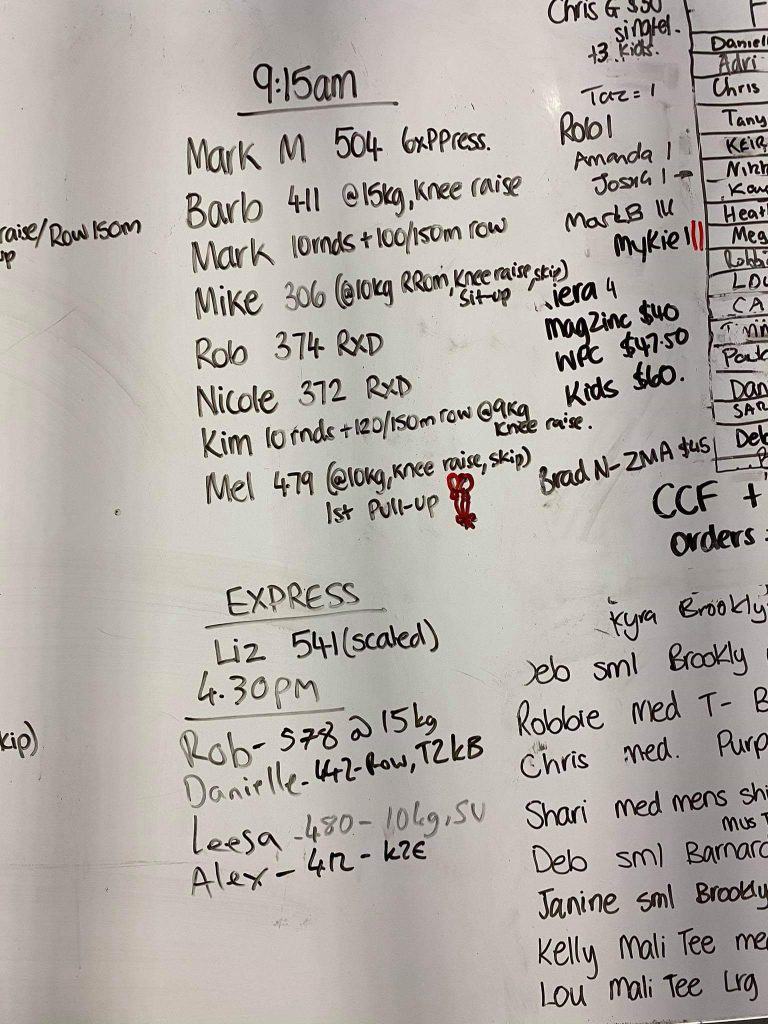 9:15am
Mark M 504 6xPPress.
Barb 411 @15kg, Knee raise
Mark 10rnds + 100/150m row
Mike 306 (@10kg RRom, Knee raise, skip)
Sit-up
Rob 374 RXD
Nicole 372 RXD
Kim 10rnds + 120/150m row @9kg
Knee raise.
Mel 479 (@10kg, Knee raise, skip)
1st Pull-up
EXPRESS
Liz 541 (scaled)
4.30PM
Rob - 578 @ 15kg
Danielle - 442 - Row, T2KB
Leesa - 480 - 10kg, SU
Alex - 412 - K2E
raise/Row 150m
up
kip)
Chris G $50
singlet.
+3 kids.
Taz = 1
Rob 1
Amanda 1
Josh G 1
Mark B III
Mykie III
iera 4
mag2inc $40
WPC $47.50
Kids $60.
Brad N - ZMA $45
F
Daniell
Adri
Chris
Tany
KEIR
Nikk
Heat
Meg
Robbi
LOU
CA
Dan
SAR
Deb
CCF +
orders
Kyra Brookly
Deb sml Brookly
Robbie med T- B
Chris med. Purp
Shari med mens shi
mus T
Deb sml Barnard
Janine sml Brookly
Kelly Mali Tee me
Lou Mali Tee Lrg